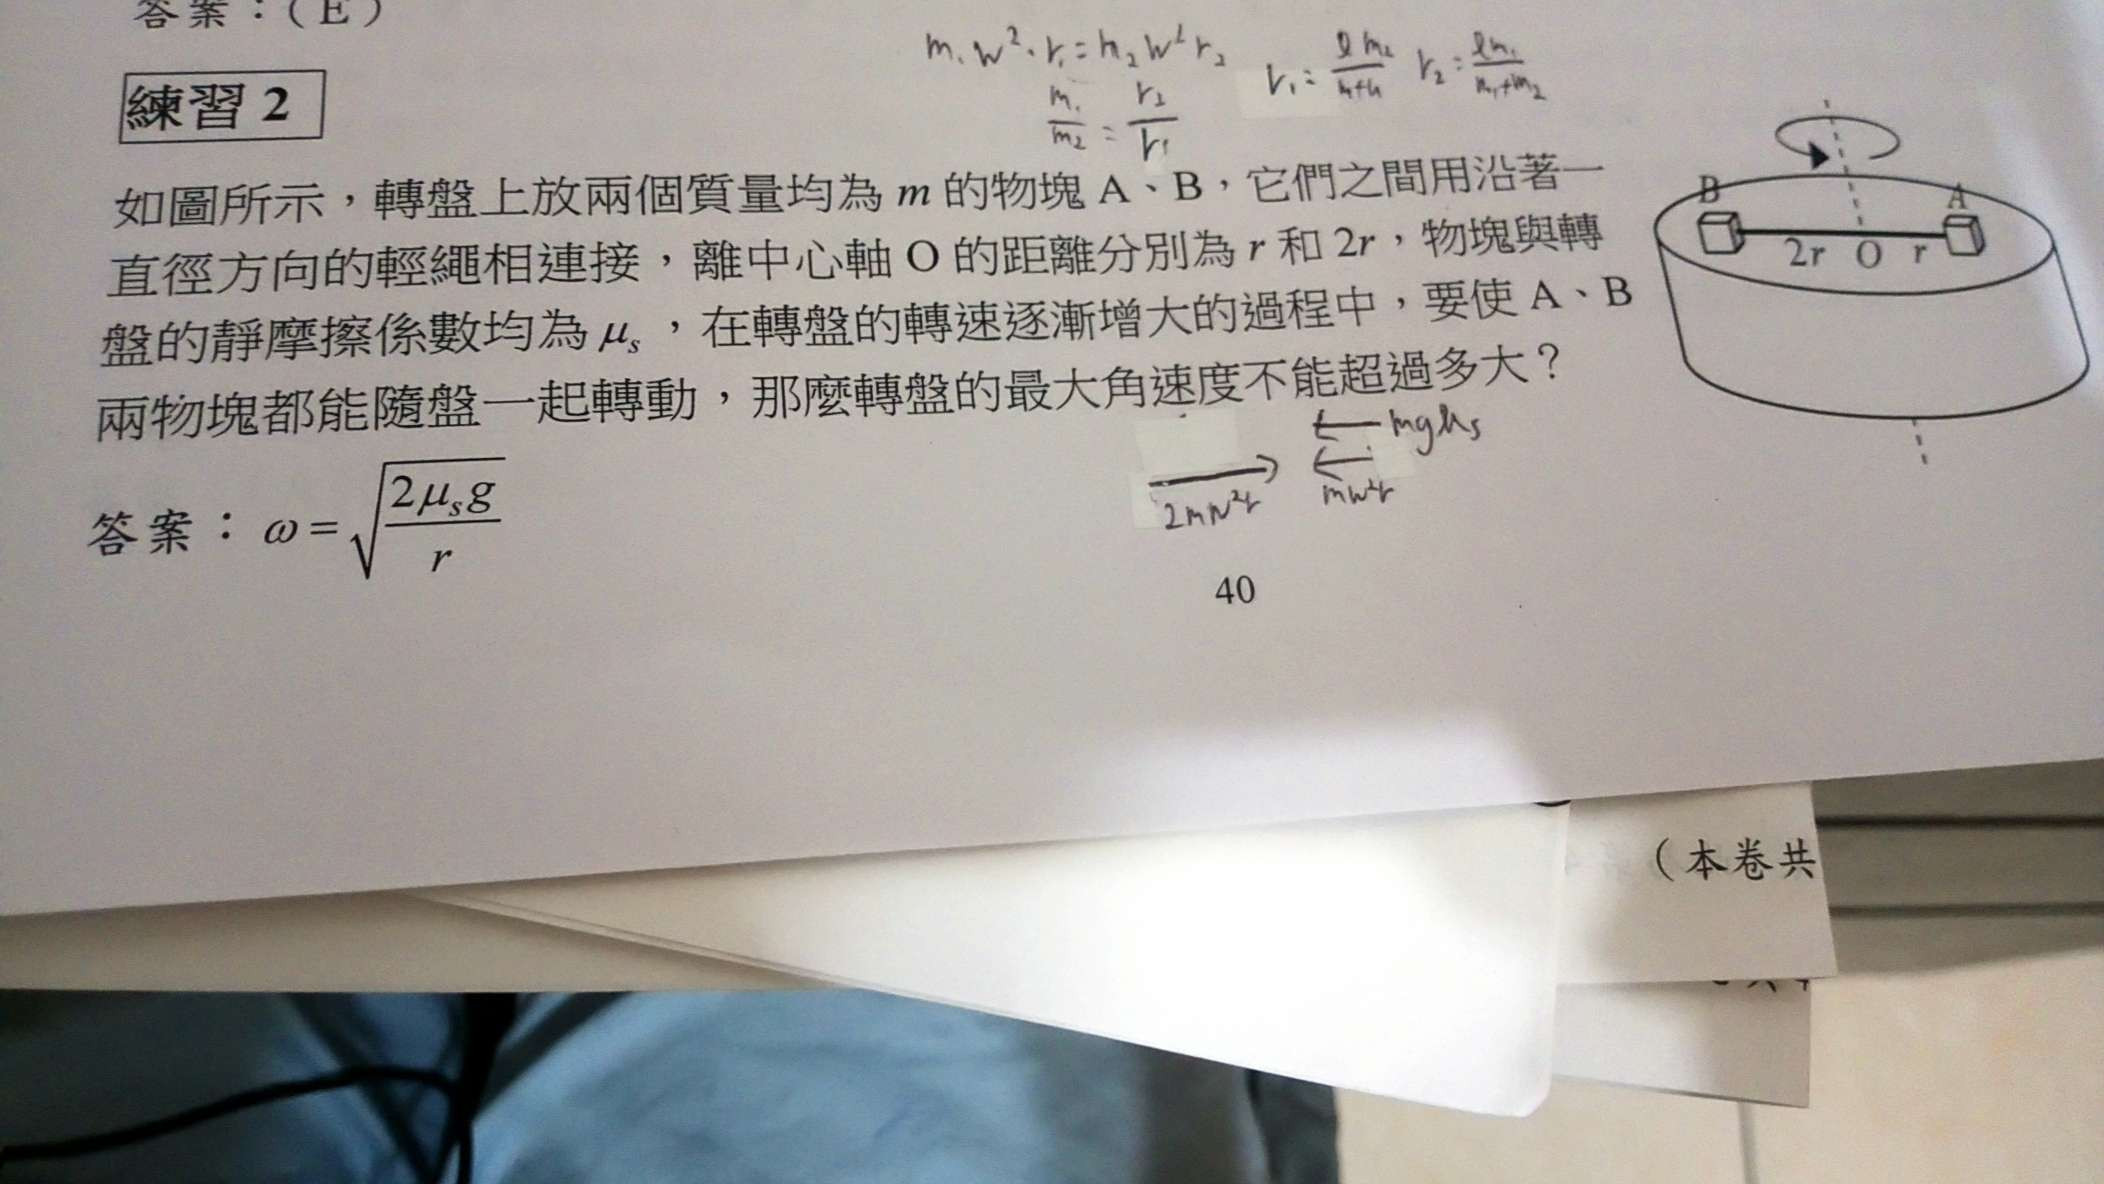 答案：(E)
m₁w²·r₁=m₂w²r₂
m₁/m₂ = r₂/r₁
r₁= ℓm₂/m+m r₂= ℓm₁/m₁+m₂
練習 2
如圖所示，轉盤上放兩個質量均為 m 的物塊 A、B，它們之間用沿著一
直徑方向的輕繩相連接，離中心軸 O 的距離分別為 r 和 2r，物塊與轉
盤的靜摩擦係數均為 μₛ，在轉盤的轉速逐漸增大的過程中，要使 A、B
兩物塊都能隨盤一起轉動，那麼轉盤的最大角速度不能超過多大？
B A
2r O r
mgμₛ
2mw²r mw²r
答案：ω=√(2μₛg/r)
40
（本卷共